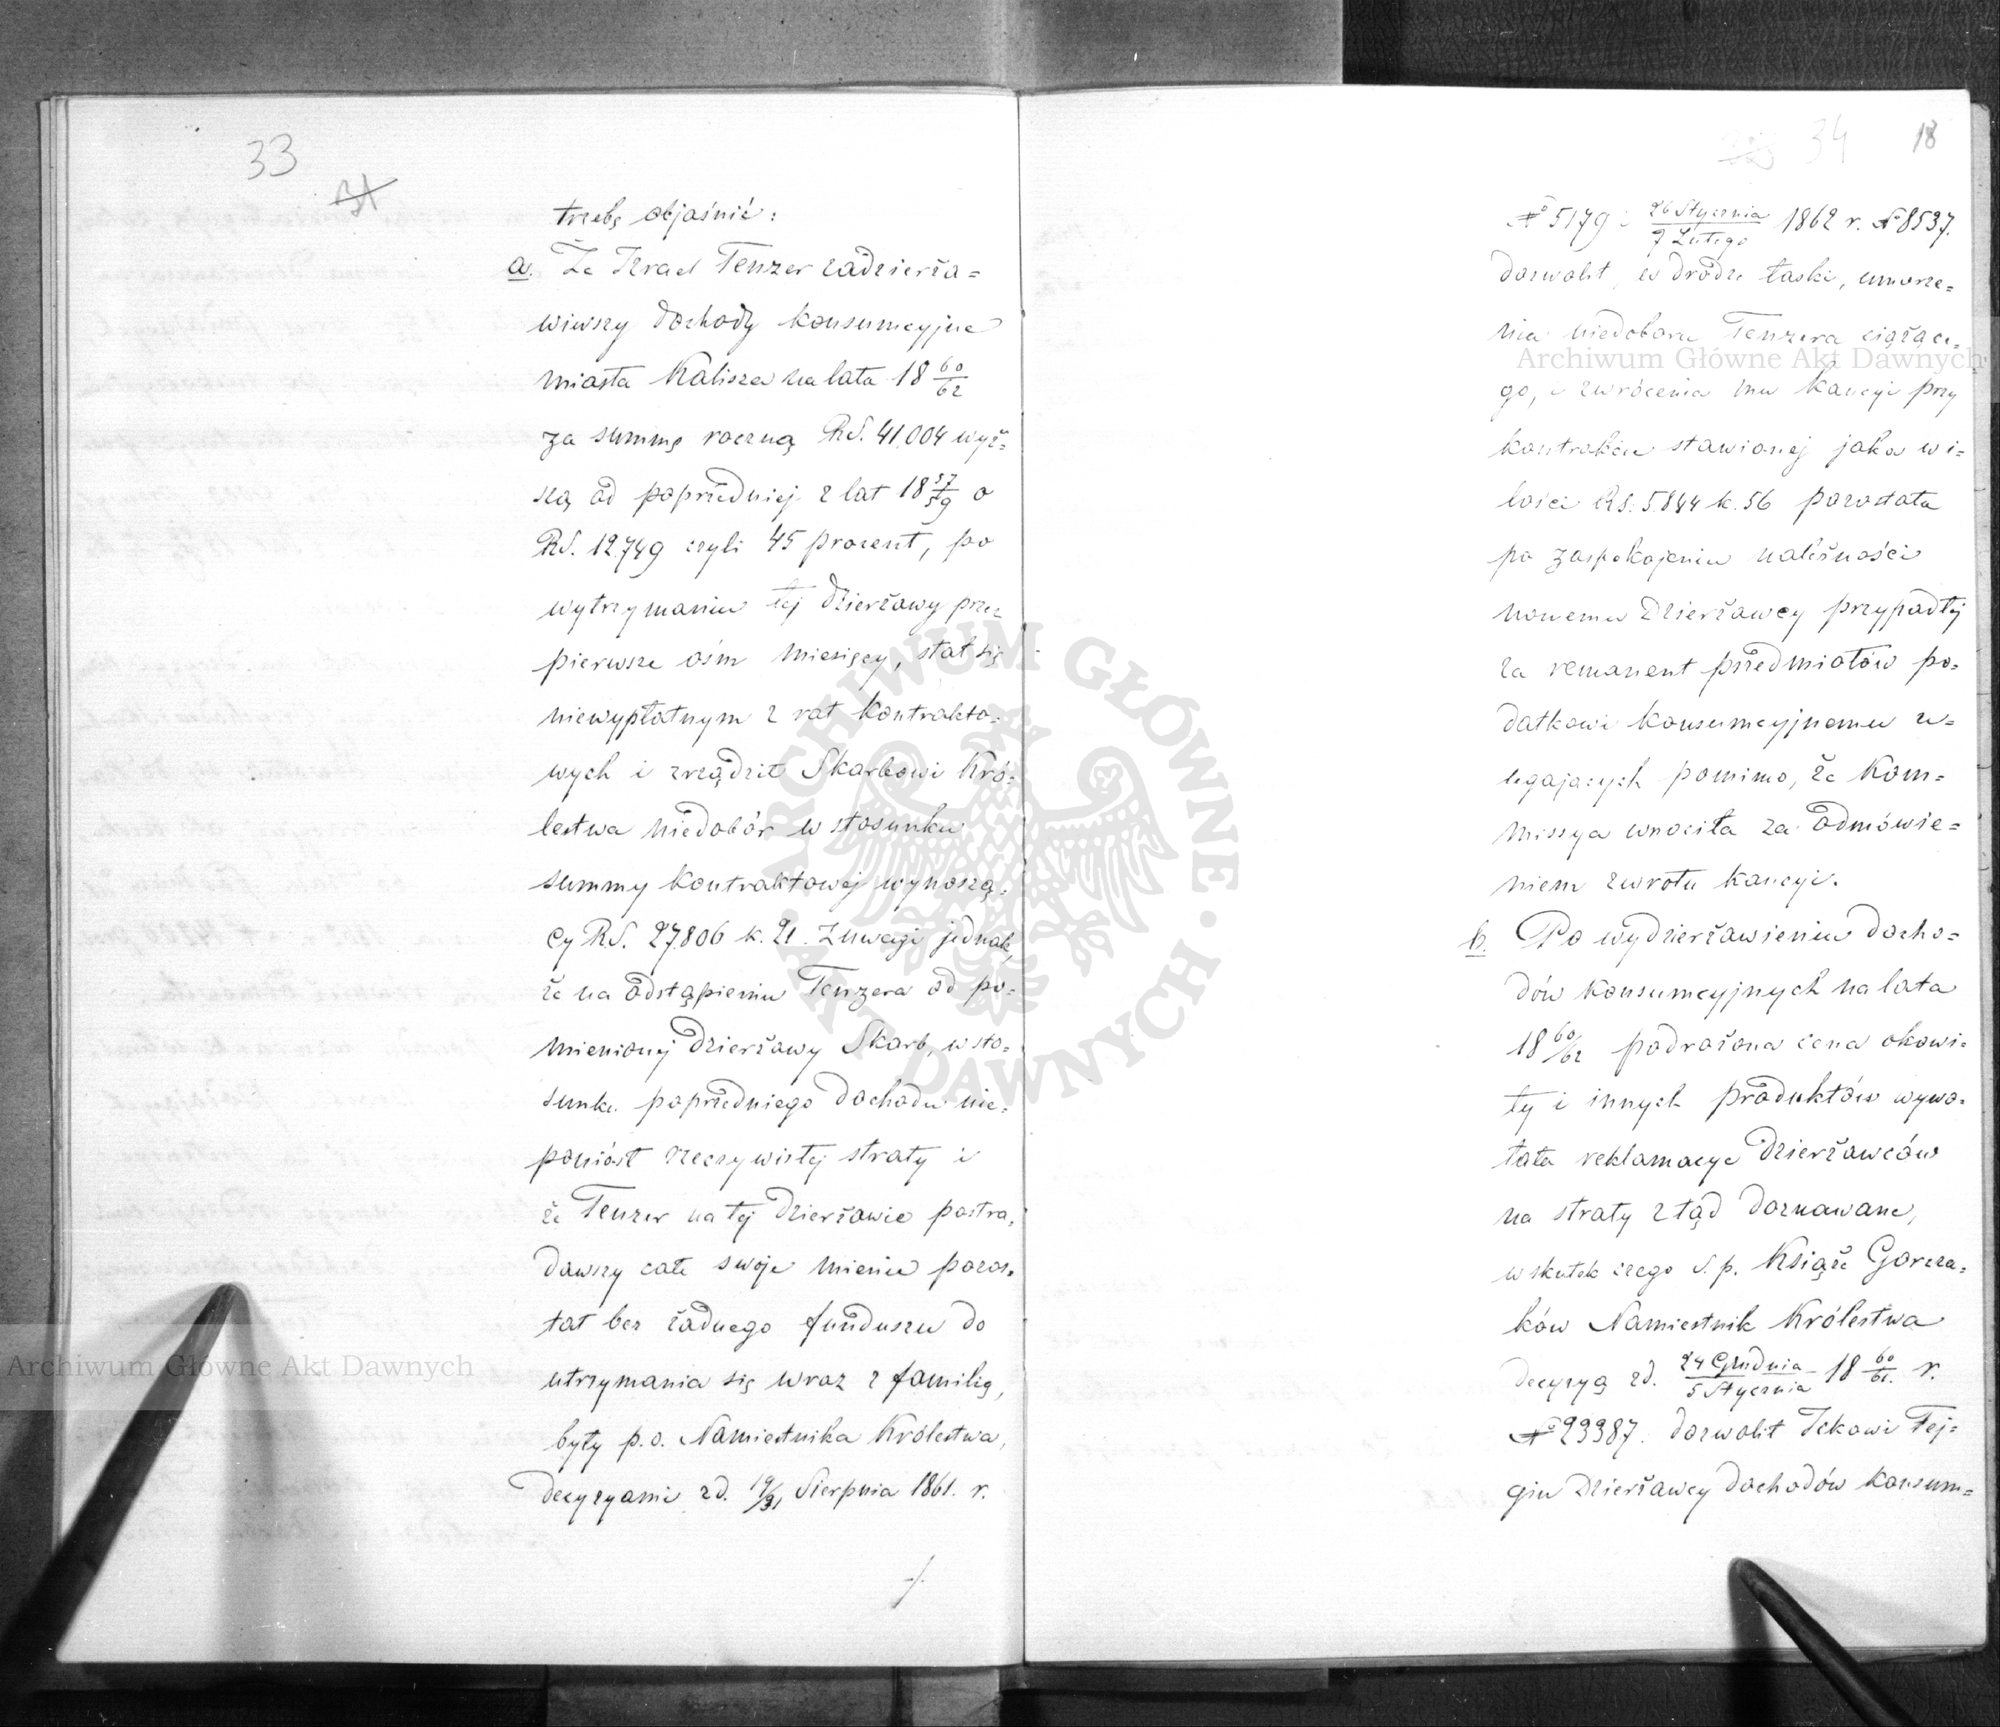 33
31
trzebę objaśnić:
a. Że Izrael Tenzer zadzierża=
wiwszy dochody konsumcyjne
miasta Kalisza na lata 18 60/62
za summę roczną RS. 41,004 wyż=
szą od poprzedniej z lat 18 57/59 o
RS. 12,749 czyli 45 procent, po
wytrzymaniu tej dzierżawy przez
pierwsze ośm miesięcy, stał się
niewypłatnym z rat kontrakto=
wych i zrządził Skarbowi Kró=
lestwa niedobór w stosunku
summy kontraktowej wynoszą=
cy RS. 27.806 k. 21. Z uwagi jednak,
że na odstąpieniu Tenzera od po=
mienionej dzierżawy Skarb, w sto=
sunku poprzedniego dochodu nie=
poniósł rzeczywistej straty i
że Tenzer na tej dzierżawie postra=
dawszy całe swoje mienie pozos=
tał bez żadnego funduszu do
utrzymania się wraz z familią,
były p.o. Namiestnika Królestwa,
decyzyami z d. 19/31 Sierpnia 1861. r.
34 18
№ 5179 i 26 Stycznia/7 Lutego 1862 r. № 8537.
dozwolił, w drodze łaski, umorze=
nia niedoboru Tenzera ciążące=
go, i zwrócenia mu kaucyi przy
kontrakcie stawionej jaka w i=
lości RS. 5.844 k. 56 pozostała
po zaspokojeniu należności
nowemu Dzierżawcy przypadłej
za remanent przedmiotów po=
datkowi konsumcyjnemu u=
legających pomimo, że Kom=
missya wnosiła za odmówie=
niem zwrotu kaucyi.
b. Po wydzierżawieniu docho=
dów konsumcyjnych na lata
18 60/62 podrożona cena okowi=
ty i innych produktów wywo=
łała reklamacye Dzierżawców
na straty ztąd doznawane,
w skutek czego ś. p. Książe Gorcza=
ków Namiestnik Królestwa
decyzyą z d. 24 Grudnia/5 Stycznia 18 60/61. r.
№ 23387. dozwolił Ickowi Fej=
gin Dzierżawcy dochodów konsum=
Archiwum Główne Akt Dawnych
Archiwum Główne Akt Dawnych
ARCHIWUM GŁÓWNE · AKT DAWNYCH ·